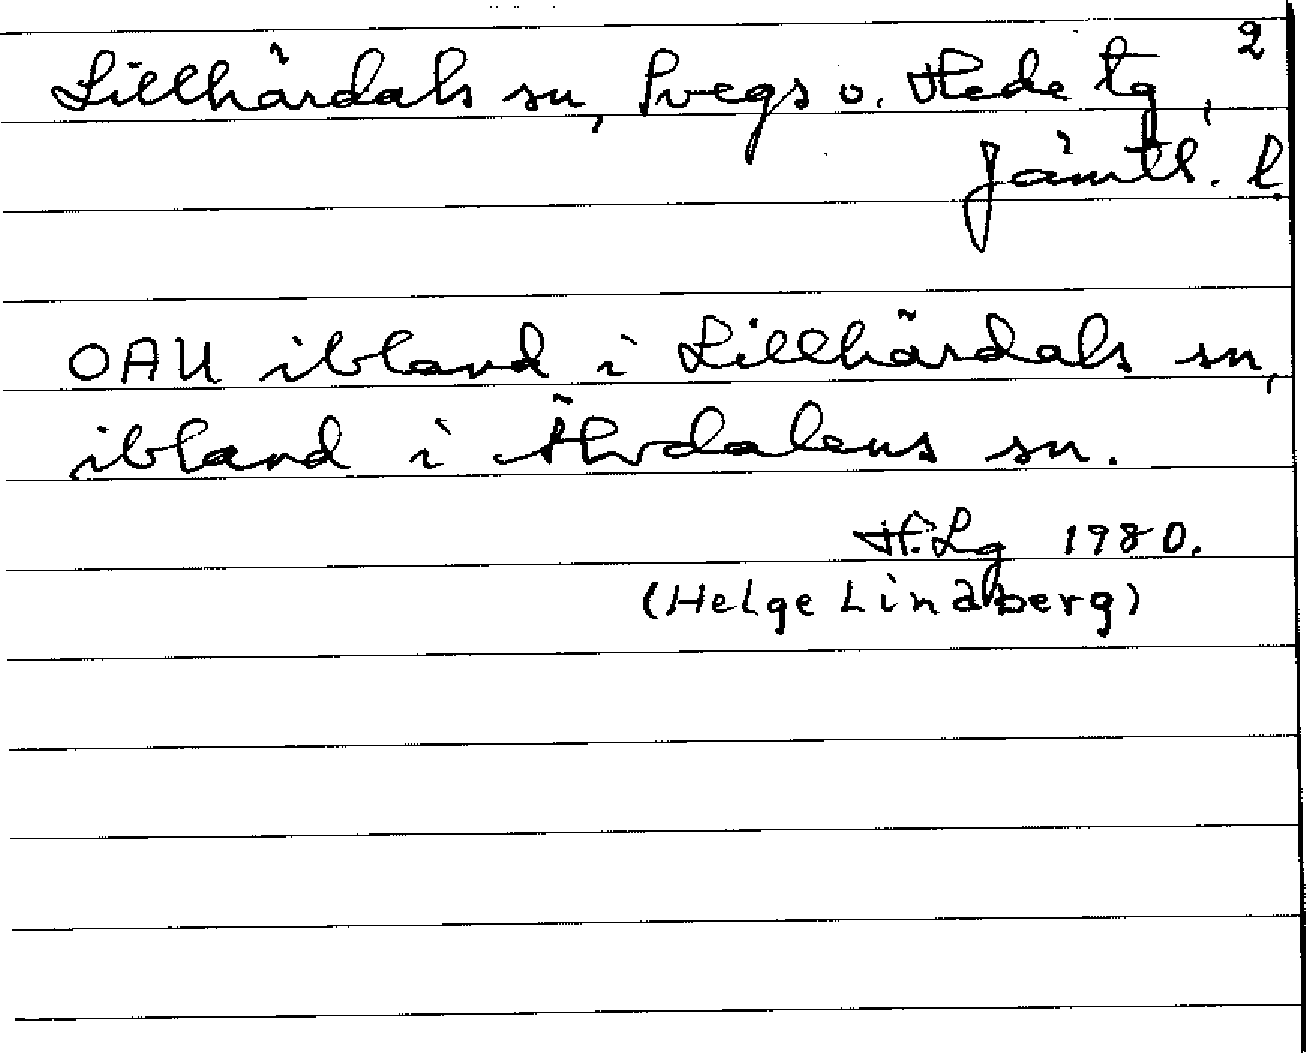 2
Lillhärdals sn, Svegs o. Hede tg,
Jämtl. l.
OAU ibland i Lillhärdals sn,
ibland i Älvdalens sn.
H. Lg 1980.
(Helge Lindberg)